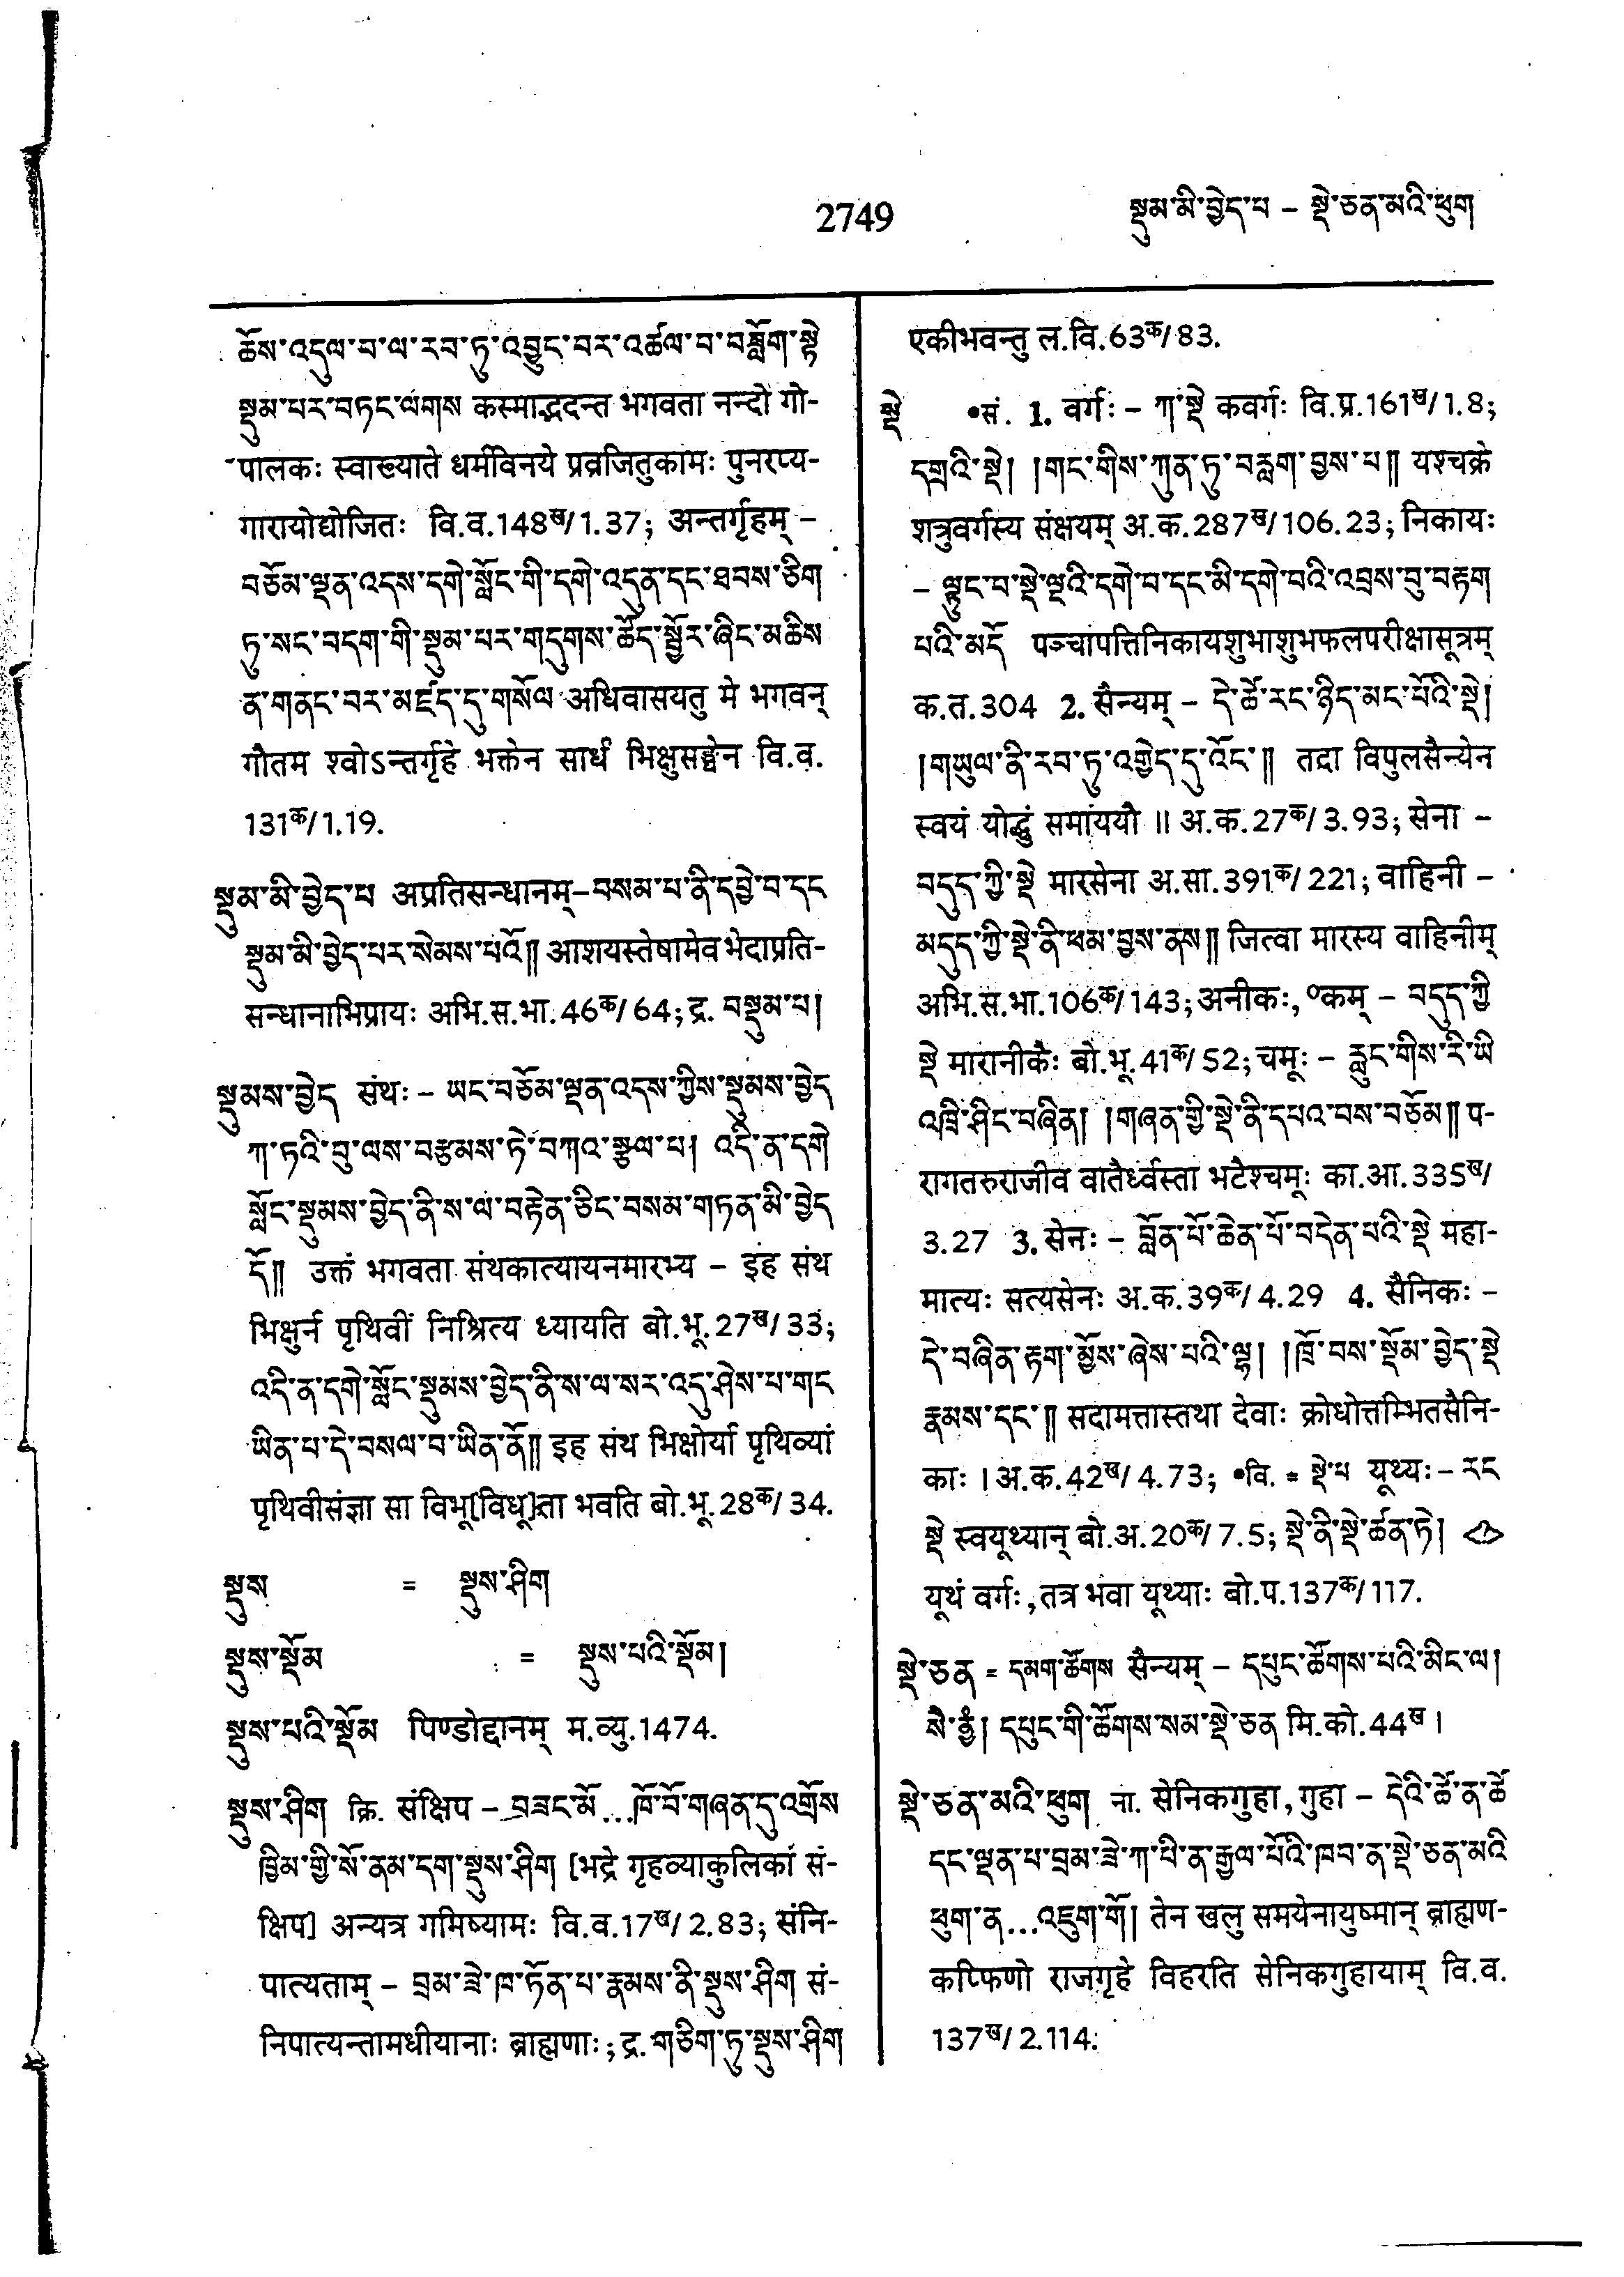 2749
སྡུམ་མི་བྱེད་པ – སྡེ་ཅན་མའི་ཕུག
ཆོས་འདུལ་བ་ལ་རབ་ཏུ་འབྱུང་བར་འཚལ་བ་བཟློག་སྟེ
སྡུམ་པར་བཏང་ལགས कस्माद्भदन्त भगवता नन्दो गो-
पालकः स्वाख्याते धर्मविनये प्रव्रजितुकामः पुनरप्य-
गारायोद्योजितः वि.व.148ख/1.37; अन्तर्गृहम् –
བཅོམ་ལྡན་འདས་དགེ་སློང་གི་དགེ་འདུན་དང་ཐབས་ཅིག
ཏུ་སང་བདག་གི་སྡུམ་པར་གདུགས་ཚོད་སྦྱོར་ཞིང་མཆིས
ན་གནང་བར་མཛད་དུ་གསོལ अधिवासयतु मे भगवन्
गौतम श्वोऽन्तर्गृहे भक्तेन सार्धं भिक्षुसङ्घेन वि.व.
131क/1.19.
སྡུམ་མི་བྱེད་པ अप्रतिसन्धानम्–བསམ་པ་ནི་དབྱེ་བ་དང
སྡུམ་མི་བྱེད་པར་སེམས་པའོ༎ आशयस्तेषामेव भेदाप्रति-
सन्धानाभिप्रायः अभि.स.भा.46क/64; द्र. བསྡུམ་པ།
སྡུམས་བྱེད संथः – ཡང་བཅོམ་ལྡན་འདས་ཀྱིས་སྡུམས་བྱེད
ཀ་ཏའི་བུ་ལས་བརྩམས་ཏེ་བཀའ་སྩལ་པ། འདི་ན་དགེ
སློང་སྡུམས་བྱེད་ནི་ས་ལ་བརྟེན་ཅིང་བསམ་གཏན་མི་བྱེད
དོ༎ उक्तं भगवता संथकात्यायनमारभ्य – इह संथ
भिक्षुर्न पृथिवीं निश्रित्य ध्यायति बो.भू.27ख/33;
འདི་ན་དགེ་སློང་སྡུམས་བྱེད་ནི་ས་ལ་སར་འདུ་ཤེས་པ་གང
ཡིན་པ་དེ་བསལ་བ་ཡིན་ནོ༎ इह संथ भिक्षोर्या पृथिव्यां
पृथिवीसंज्ञा सा विभू[विधू]ता भवति बो.भू.28क/34.
སྡུས = སྡུས་ཤིག
སྡུས་སྡོམ = སྡུས་པའི་སྡོམ།
སྡུས་པའི་སྡོམ पिण्डोद्दानम् म.व्यु.1474.
སྡུས་ཤིག क्रि. संक्षिप – བཟང་མོ...ཁོ་བོ་གཞན་དུ་འགྲོས
ཁྱིམ་གྱི་སོ་ནམ་དག་སྡུས་ཤིག [भद्रे गृहव्याकुलिकां सं-
क्षिप] अन्यत्र गमिष्यामः वि.व.17ख/2.83; संनि-
पात्यताम् – བྲམ་ཟེ་ཁ་ཏོན་པ་རྣམས་ནི་སྡུས་ཤིག सं-
निपात्यन्तामधीयानाः ब्राह्मणाः; द्र. གཅིག་ཏུ་སྡུས་ཤིག
एकीभवन्तु ल.वि.63क/83.
སྡེ •सं. 1. वर्गः – ཀ་སྡེ कवर्गः वि.प्र.161ख/1.8;
དགྲའི་སྡེ། །གང་གིས་ཀུན་ཏུ་བརླག་བྱས་པ༎ यश्चक्रे
शत्रुवर्गस्य संक्षयम् अ.क.287ख/106.23; निकायः
– ལྟུང་བ་སྡེ་ལྔའི་དགེ་བ་དང་མི་དགེ་བའི་འབྲས་བུ་བརྟག
པའི་མདོ पञ्चापत्तिनिकायशुभाशुभफलपरीक्षासूत्रम्
क.त.304 2. सैन्यम् – དེ་ཚེ་རང་ཉིད་མང་པོའི་སྡེ།
།གཡུལ་ནི་རབ་ཏུ་འགྱེད་དུ་འོང་༎ तदा विपुलसैन्येन
स्वयं योद्धुं समाययौ ॥ अ.क.27क/3.93; सेना –
བདུད་ཀྱི་སྡེ मारसेना अ.सा.391क/221; वाहिनी –
མདུད་ཀྱི་སྡེ་ནི་ཕམ་བྱས་ནས༎ जित्वा मारस्य वाहिनीम्
अभि.स.भा.106क/143; अनीकः, ०कम् – བདུད་ཀྱི
སྡེ मारानीकैः बो.भू.41क/52; चमूः – རླུང་གིས་རི་ཡི
འཁྲི་ཤིང་བཞིན། །གཞན་གྱི་སྡེ་ནི་དཔའ་བས་བཅོམ༎ प-
रागतरुराजीव वातैर्ध्वस्ता भटैश्चमूः का.आ.335ख/
3.27 3. सेनः – བློན་པོ་ཆེན་པོ་བདེན་པའི་སྡེ महा-
मात्यः सत्यसेनः अ.क.39क/4.29 4. सैनिकः –
དེ་བཞིན་རྟག་མྱོས་ཞེས་པའི་ལྷ། །ཁྲོ་བས་སྡོམ་བྱེད་སྡེ
རྣམས་དང་༎ सदामत्तास्तथा देवाः क्रोधोत्तम्भितसैनि-
काः । अ.क.42ख/4.73; •वि. = སྡེ་པ यूथ्यः – རང
སྡེ स्वयूथ्यान् बो.अ.20क/7.5; སྡེ་ནི་སྡེ་ཚན་ཏེ།
यूथं वर्गः, तत्र भवा यूथ्याः बो.प.137क/117.
སྡེ་ཅན = དམག་ཚོགས सैन्यम् – དཔུང་ཚོགས་པའི་མིང་ལ།
སཻ་ནྱཾ། དཔུང་གི་ཚོགས་སམ་སྡེ་ཅན मि.को.44ख ।
སྡེ་ཅན་མའི་ཕུག ना. सेनिकगुहा, गुहा – དེའི་ཚེ་ན་ཚེ
དང་ལྡན་པ་བྲམ་ཟེ་ཀ་པི་ན་རྒྱལ་པོའི་ཁབ་ན་སྡེ་ཅན་མའི
ཕུག་ན...འཇུག་གོ། तेन खलु समयेनायुष्मान् ब्राह्मण-
कप्फिणो राजगृहे विहरति सेनिकगुहायाम् वि.व.
137ख/2.114.